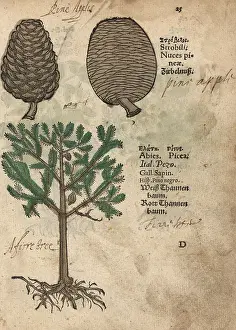 Pine Apple
25
Στρόβιλοι.
Strobili;
Nuces pi-
neæ.
Zirbelnuß.
pini apple
Ελάτη. Πίτυς.
Abies. Picea.
Ital. Pezo.
Gall. Sapin.
Hisp. Pino negro.
Weiß Thannen
baum.
Rott Thannen
baum.
A firre tree
D